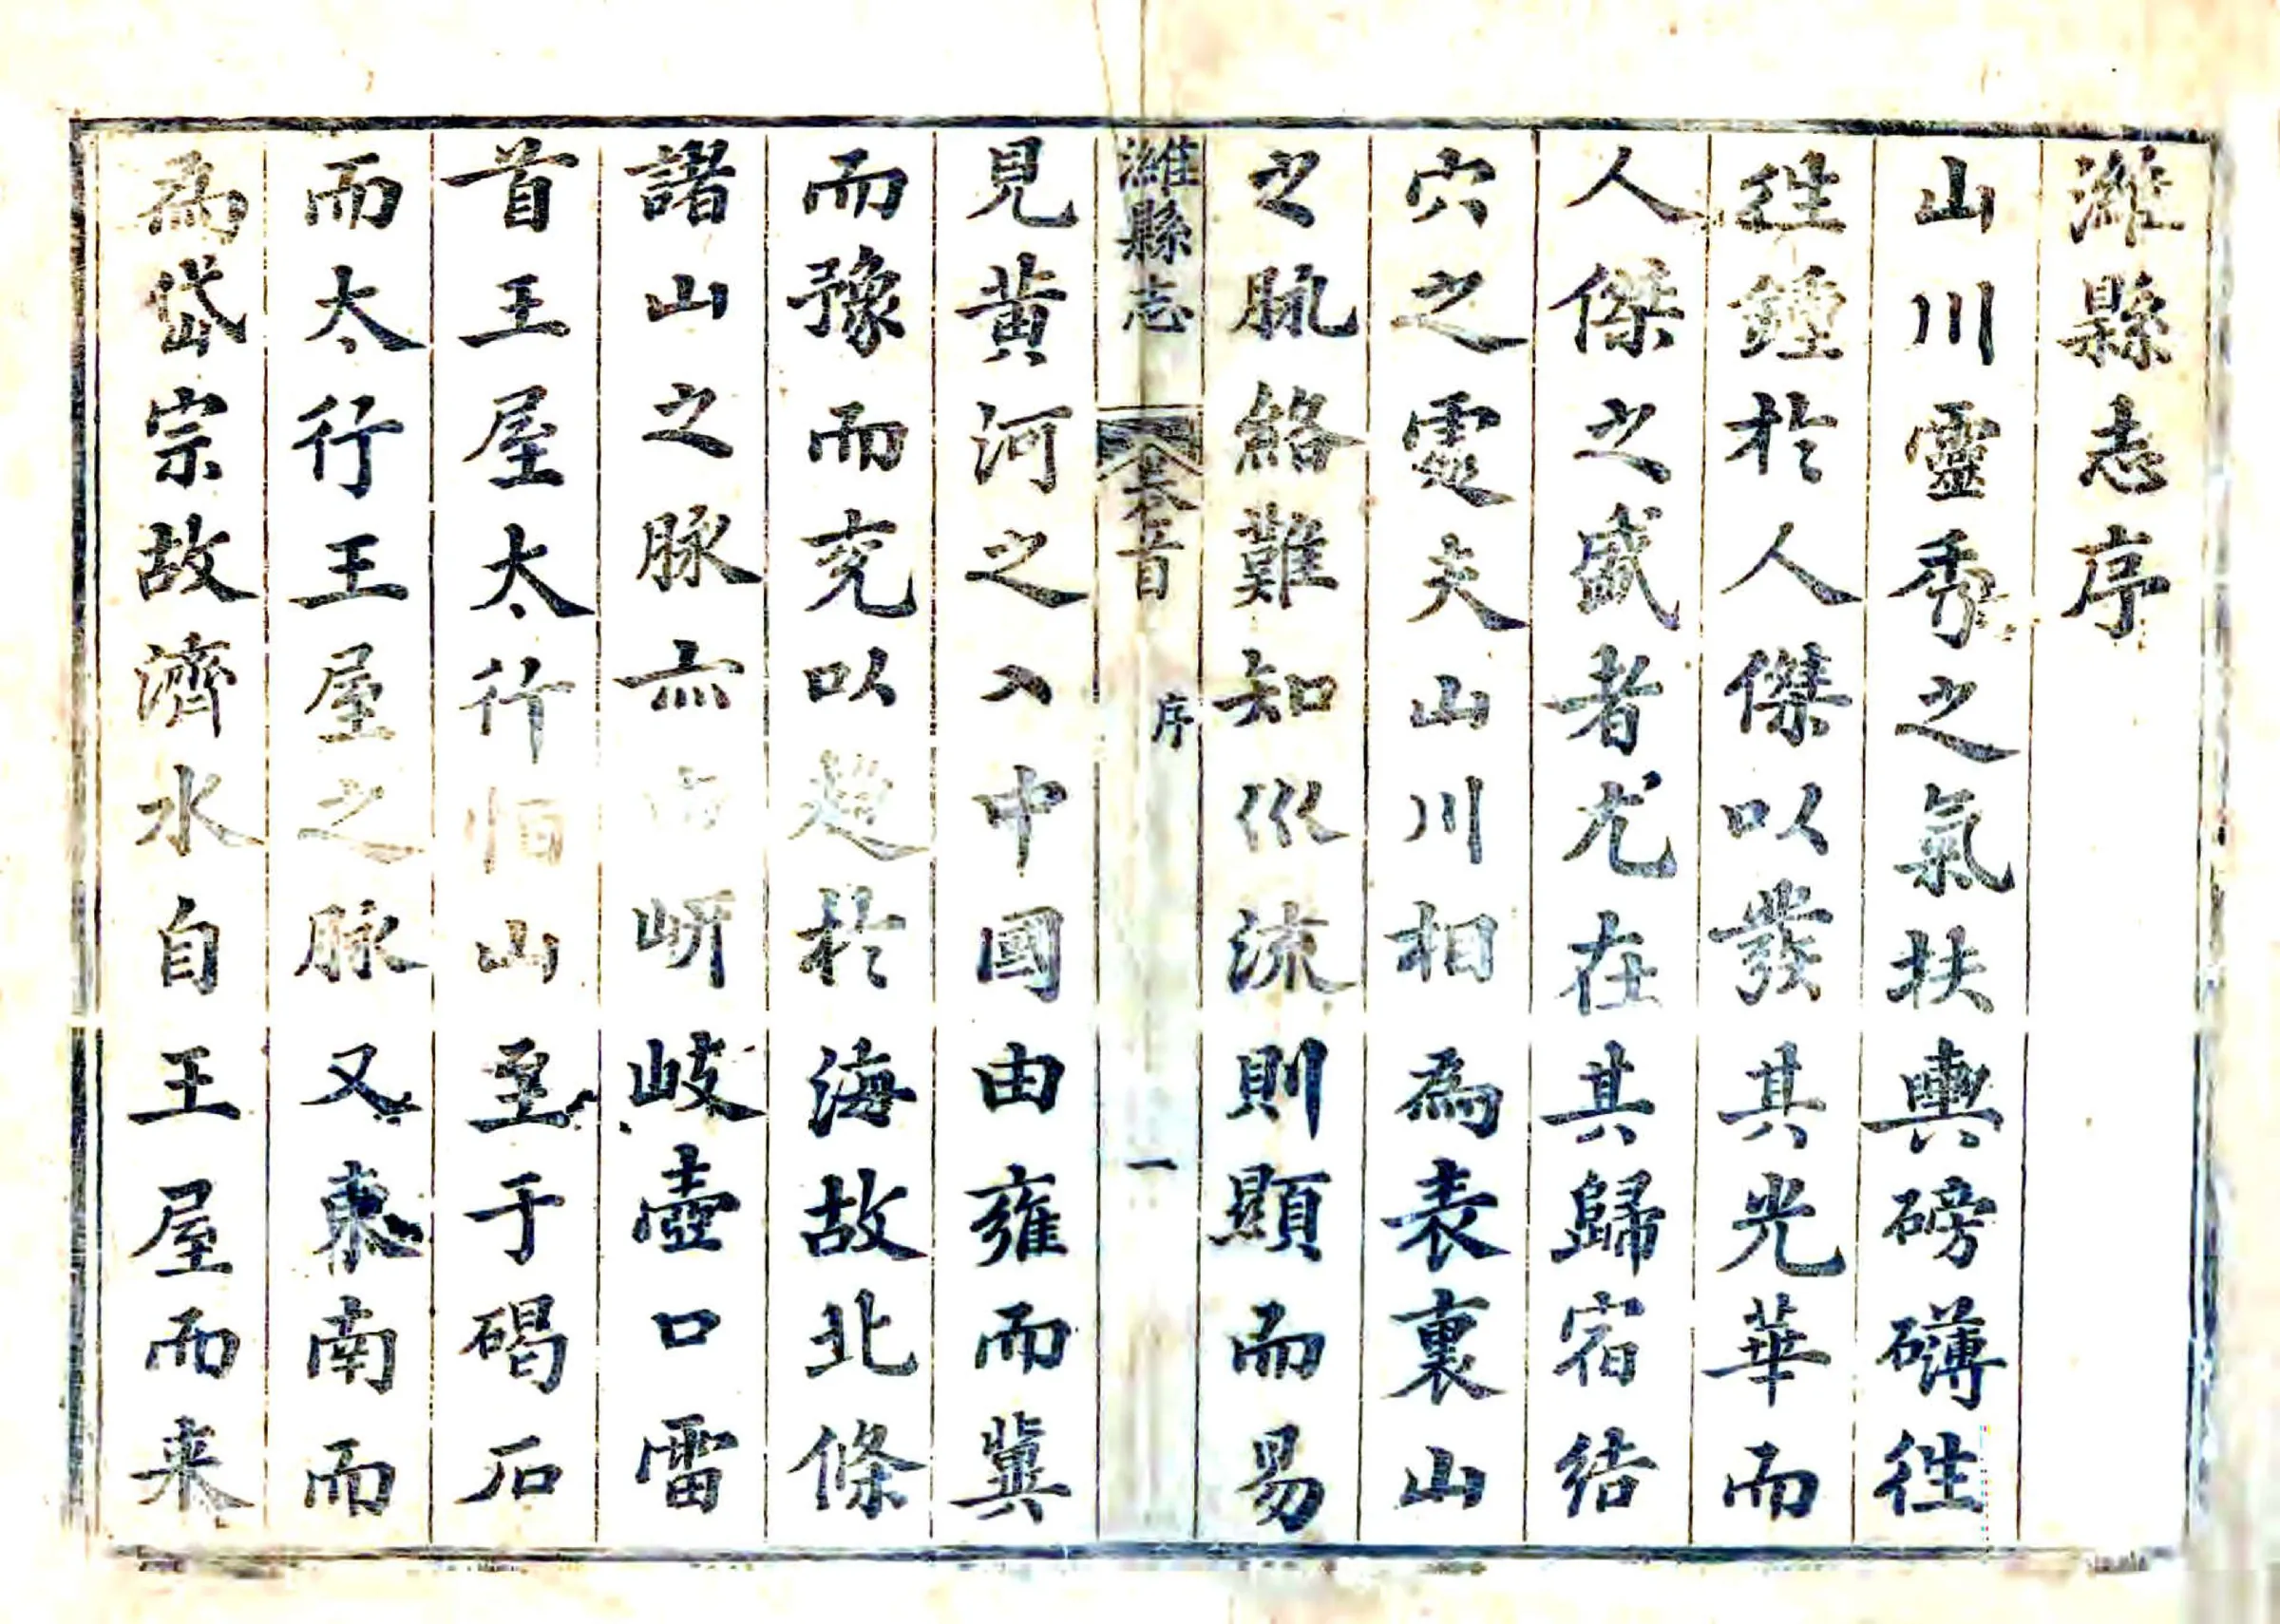 濰縣志序
山川靈秀之氣扶輿磅礴徃
徃鍾於人傑以發其光華而
人傑之盛者尤在其歸宿結
穴之處夫山川相為表裏山
之脉絡難知從流則顯而易
濰縣志
卷首
序
一
見黄河之入中國由雍而冀
而豫而兖以趨於海故北條
諸山之脉亦岍岐壺口雷
首王屋太行恒山至于碣石
而太行王屋之脉又東南而
為岱宗故濟水自王屋而来